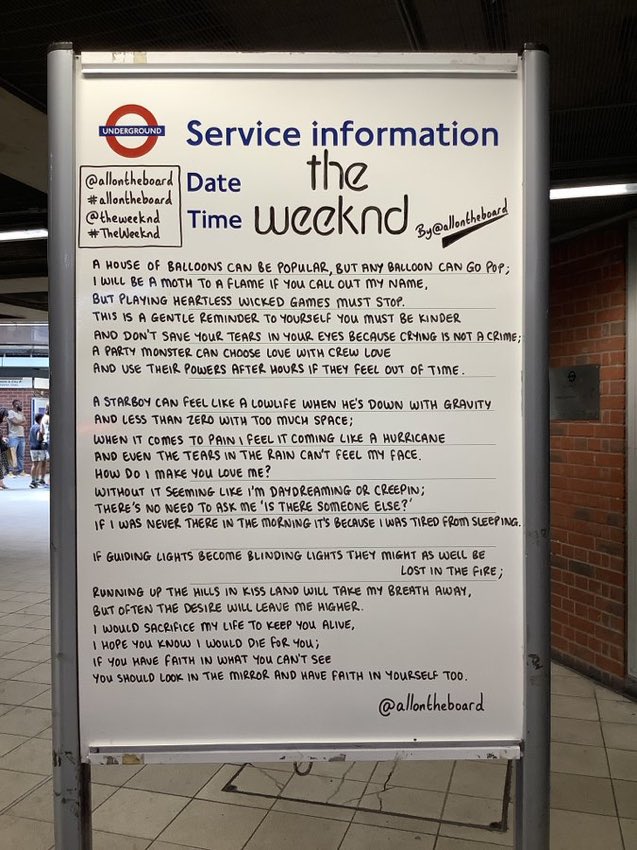 UNDERGROUND
Service information
@allontheboard
#allontheboard
@theweeknd
#TheWeeknd
Date
Time
the
weeknd
By @allontheboard
A HOUSE OF BALLOONS CAN BE POPULAR, BUT ANY BALLOON CAN GO POP;
I WILL BE A MOTH TO A FLAME IF YOU CALL OUT MY NAME,
BUT PLAYING HEARTLESS WICKED GAMES MUST STOP.
THIS IS A GENTLE REMINDER TO YOURSELF YOU MUST BE KINDER
AND DON'T SAVE YOUR TEARS IN YOUR EYES BECAUSE CRYING IS NOT A CRIME;
A PARTY MONSTER CAN CHOOSE LOVE WITH CREW LOVE
AND USE THEIR POWERS AFTER HOURS IF THEY FEEL OUT OF TIME.
A STARBOY CAN FEEL LIKE A LOWLIFE WHEN HE'S DOWN WITH GRAVITY
AND LESS THAN ZERO WITH TOO MUCH SPACE;
WHEN IT COMES TO PAIN I FEEL IT COMING LIKE A HURRICANE
AND EVEN THE TEARS IN THE RAIN CAN'T FEEL MY FACE.
HOW DO I MAKE YOU LOVE ME?
WITHOUT IT SEEMING LIKE I'M DAYDREAMING OR CREEPIN;
THERE'S NO NEED TO ASK ME 'IS THERE SOMEONE ELSE?'
IF I WAS NEVER THERE IN THE MORNING IT'S BECAUSE I WAS TIRED FROM SLEEPING.
IF GUIDING LIGHTS BECOME BLINDING LIGHTS THEY MIGHT AS WELL BE
LOST IN THE FIRE;
RUNNING UP THE HILLS IN KISS LAND WILL TAKE MY BREATH AWAY,
BUT OFTEN THE DESIRE WILL LEAVE ME HIGHER.
I WOULD SACRIFICE MY LIFE TO KEEP YOU ALIVE,
I HOPE YOU KNOW I WOULD DIE FOR YOU;
IF YOU HAVE FAITH IN WHAT YOU CAN'T SEE
YOU SHOULD LOOK IN THE MIRROR AND HAVE FAITH IN YOURSELF TOO.
@allontheboard